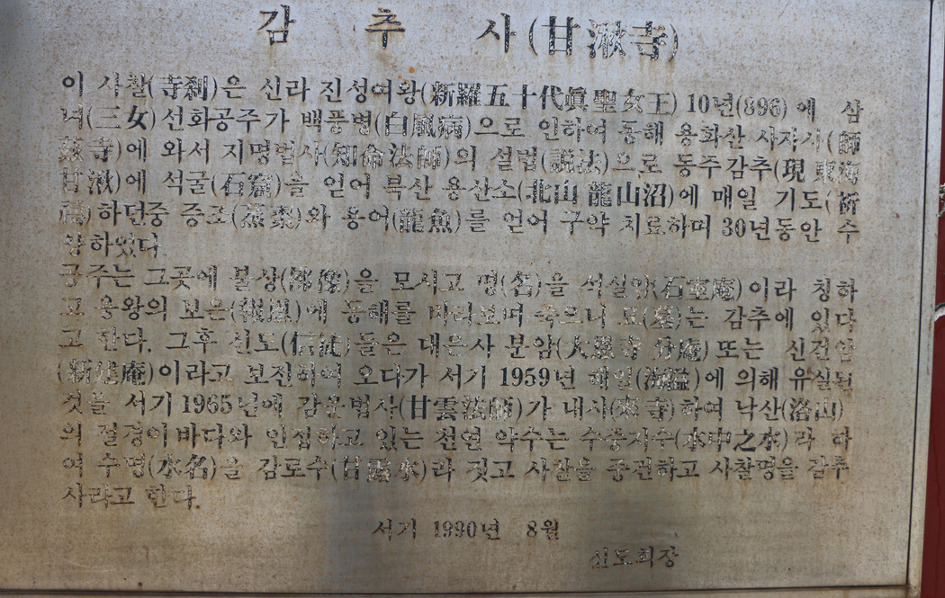 감 추 사 (甘湫寺)
이 사찰(寺刹)은 신라 진성여왕(新羅五十代眞聖女王) 10년(896) 에 삼
녀(三女)선화공주가 백풍병(白風病)으로 인하여 동해 용화산 사자사(師
玆寺)에 와서 지명법사(知命法師)의 설법(說法)으로 동주감추(現 東海
甘湫)에 석굴(石窟)을 얻어 북산 용산소(北山 龍山沼)에 매일 기도(祈
禱)하던중 증조(蒸棗)와 용어(龍魚)를 얻어 구약 치료하며 30년동안 수
양하였다.
공주는 그곳에 불상(佛像)을 모시고 명(名)을 석실암(石室庵)이라 칭하
고 용왕의 보은(報恩)에 동해를 바라보며 죽으니 묘(墓)는 감추에 있다
고 한다. 그후 신도(信徒)들은 대은사 분암(大恩寺 分庵) 또는 신건암
(新建庵)이라고 보전하여 오다가 서기 1959년 해일(海溢)에 의해 유실된
것을 서기 1965년에 감운법사(甘雲法師)가 내사(來寺)하여 낙산(洛山)
의 절경이 바다와 인접하고 있는 천연 약수는 수중지수(水中之水)라 하
여 수명(水名)을 감로수(甘露水)라 짓고 사찰을 중건하고 사찰명을 감추
사라고 한다.
서기 1990년 8월
신도회장